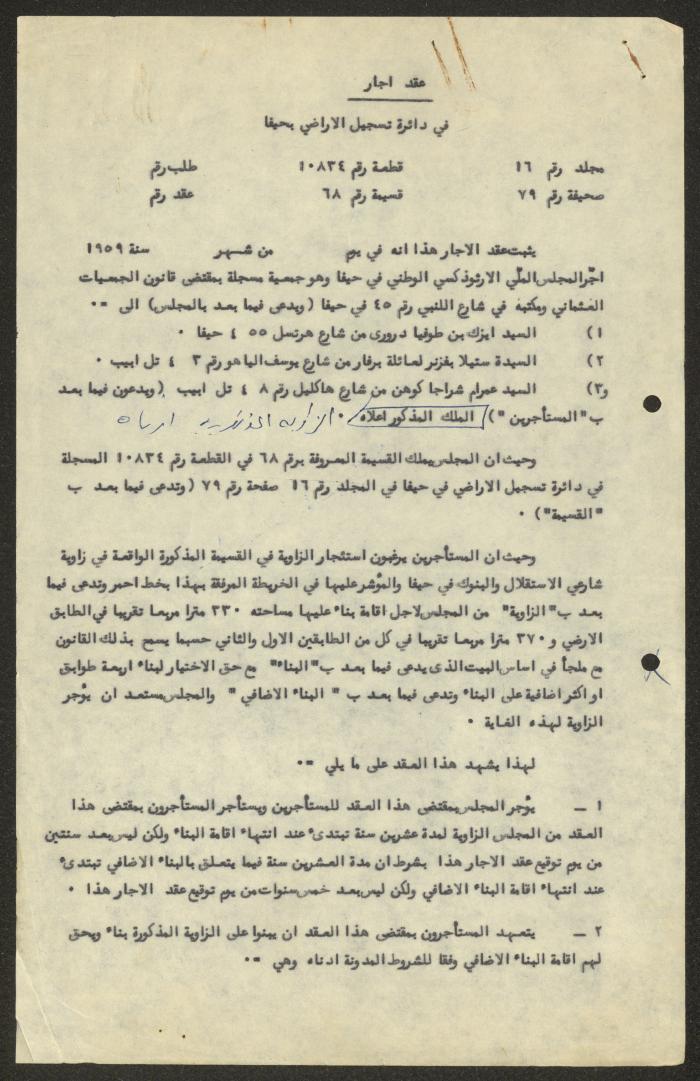 عقد اجار
في دائرة تسجيل الاراضي بحيفا
مجلد رقم ١٦ قطعة رقم ١٠٨٣٤ طلب رقم
صحيفة رقم ٧٩ قسيمة رقم ٦٨ عقد رقم
يثبت عقد الاجار هذا انه في يوم من شهر سنة ١٩٥٩
اجّر المجلس الملّي الارثوذكسي الوطني في حيفا وهو جمعية مسجلة بمقتضى قانون الجمعيات
العثماني ومكتبه في شارع اللنبي رقم ٤٥ في حيفا (ويدعى فيما بعد بالمجلس) الى -٠
١) السيد ايزك بن طوفيا درورى من شارع هرتسل ٥٥ ، حيفا ٠
٢) السيدة ستيلا بغزنر لعائلة برفار من شارع يوسف الياهو رقم ٣ ، تل ابيب ٠
و٣) السيد عمرام شراجا كوهن من شارع هاكليل رقم ٨ ، تل ابيب (ويدعون فيما بعد
ب "المستأجرين") الملك المذكور اعلاه ٠ الزاوية ادناه
وحيث ان المجلس يملك القسيمة المعروفة برقم ٦٨ في القطعة رقم ١٠٨٣٤ المسجلة
في دائرة تسجيل الاراضي في حيفا في المجلد رقم ١٦ صفحة رقم ٧٩ (وتدعى فيما بعد ب
"القسيمة") ٠
وحيث ان المستأجرين يرغبون استئجار الزاوية في القسيمة المذكورة الواقعة في زاوية
شارعي الاستقلال والبنوك في حيفا والمؤشر عليها في الخريطة المرفقة بهذا بخط احمر وتدعى فيما
بعد ب "الزاوية" من المجلس لاجل اقامة بناء عليها مساحته ٣٣٠ مترا مربعا تقريبا في الطابق
الارضي و ٣٧٠ مترا مربعا تقريبا في كل من الطابقين الاول والثاني حسبما يسمح بذلك القانون
مع ملجأ في اساس البيت الذى يدعى فيما بعد ب "البناء" مع حق الاختيار لبناء اربعة طوابق
او اكثر اضافية على البناء وتدعى فيما بعد ب " البناء الاضافي " والمجلس مستعد ان يؤجر
الزاوية لهذه الغاية ٠
لهذا يشهد هذا العقد على ما يلي -٠
١ – يؤجر المجلس بمقتضى هذا العقد للمستأجرين ويستأجر المستأجرون بمقتضى هذا
العقد من المجلس الزاوية لمدة عشرين سنة تبتدئ عند انتهاء اقامة البناء ولكن ليس بعد سنتين
من يوم توقيع عقد الاجار هذا بشرط ان مدة العشرين سنة فيما يتعلق بالبناء الاضافي تبتدئ
عند انتهاء اقامة البناء الاضافي ولكن ليس بعد خمس سنوات من يوم توقيع عقد الاجار هذا ٠
٢ – يتعهد المستأجرون بمقتضى هذا العقد ان يبنوا على الزاوية المذكورة بناء ويحق
لهم اقامة البناء الاضافي وفقا للشروط المدونة ادناه وهي -٠